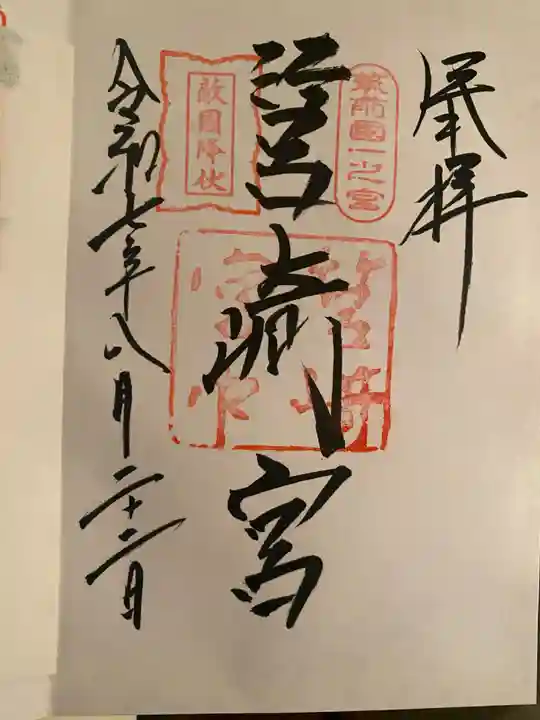 奉拝
筑前國一之宮
筥崎宮
敵國降伏
令和七年八月二十二日